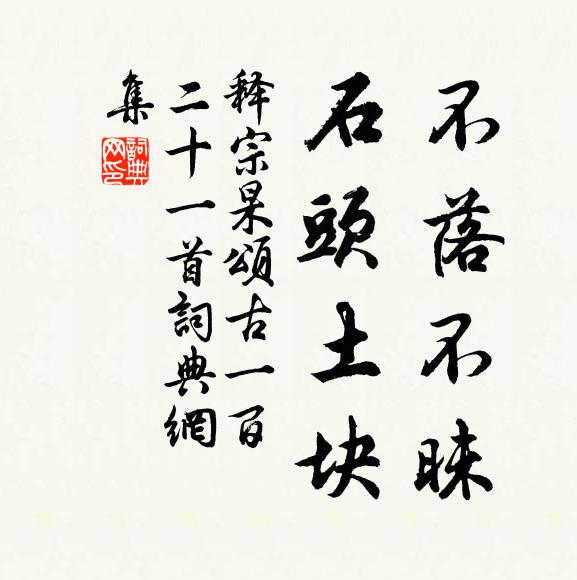 不落不昧
石頭土块
释宗杲頌古一百
二十一首詞典網
集
詞典網印